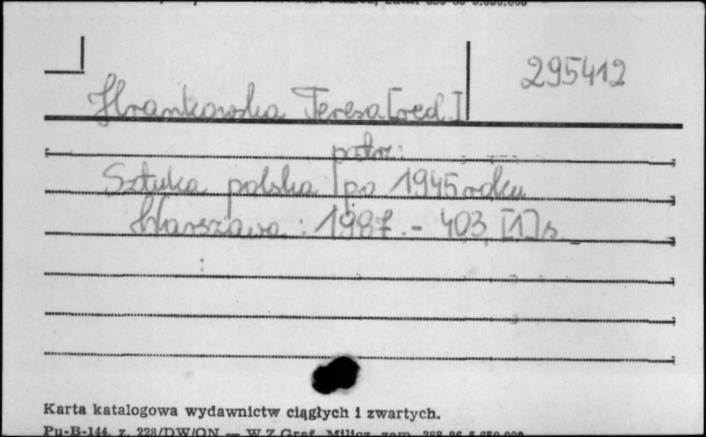 295412
Hrankowska Teresa [red.]
patrz:
Sztuka polska po 1945 roku
Warszawa : 1987. - 403, [1] s.
Karta katalogowa wydawnictw ciągłych i zwartych.
Pu-B-144, z. 228/DW/ON — W.Z.Graf. Milicz, zam.